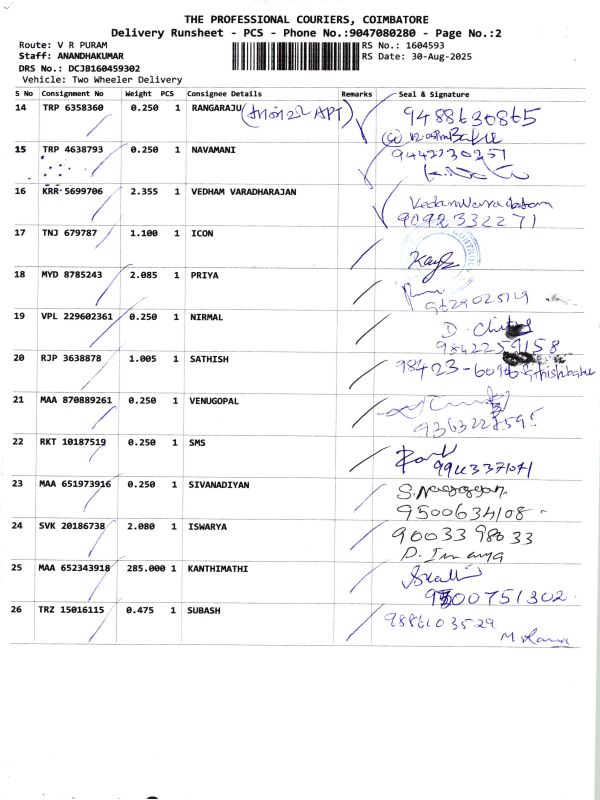 THE PROFESSIONAL COURIERS, COIMBATORE
Delivery Runsheet - PCS - Phone No.:9047080280 - Page No.:2
Route: V R PURAM
Staff: ANANDHAKUMAR
DRS No.: DCJB160459302
Vehicle: Two Wheeler Delivery
RS No.: 1604593
RS Date: 30-Aug-2025
S No Consignment No Weight PCS Consignee Details Remarks Seal & Signature
14 TRP 6358360 0.250 1 RANGARAJU 9488630865
15 TRP 4638793 0.250 1 NAVAMANI 9442230251
16 KRR 5699706 2.355 1 VEDHAM VARADHARAJAN
9092332271
17 TNJ 679787 1.100 1 ICON
18 MYD 8785243 2.085 1 PRIYA
19 VPL 229602361 0.250 1 NIRMAL
9842259158
20 RJP 3638878 1.005 1 SATHISH
21 MAA 870889261 0.250 1 VENUGOPAL
22 RKT 10187519 0.250 1 SMS
23 MAA 651973916 0.250 1 SIVANADIYAN
9500634108
24 SVK 20186738 2.080 1 ISWARYA 9003398033
25 MAA 652343918 285.000 1 KANTHIMATHI
9500751302
26 TRZ 15016115 0.475 1 SUBASH 9886103529